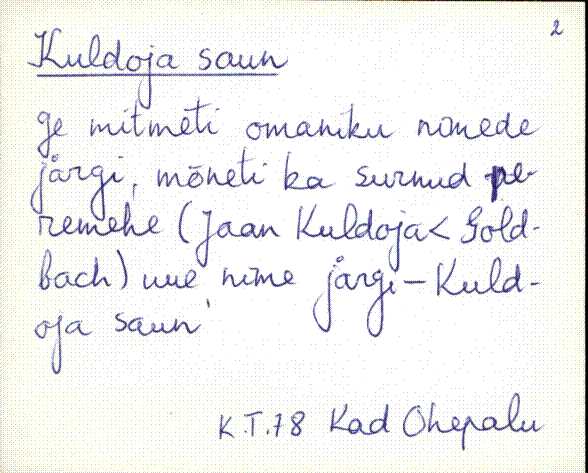 2
Kuldoja saun
ge mitmeti omaniku nimede
järgi, mõneti ka surnud pe-
remehe (Jaan Kuldoja < Gold-
bach) uue nime järgi - Kuld-
oja saun'
K.T.78 Kad Ohepalu